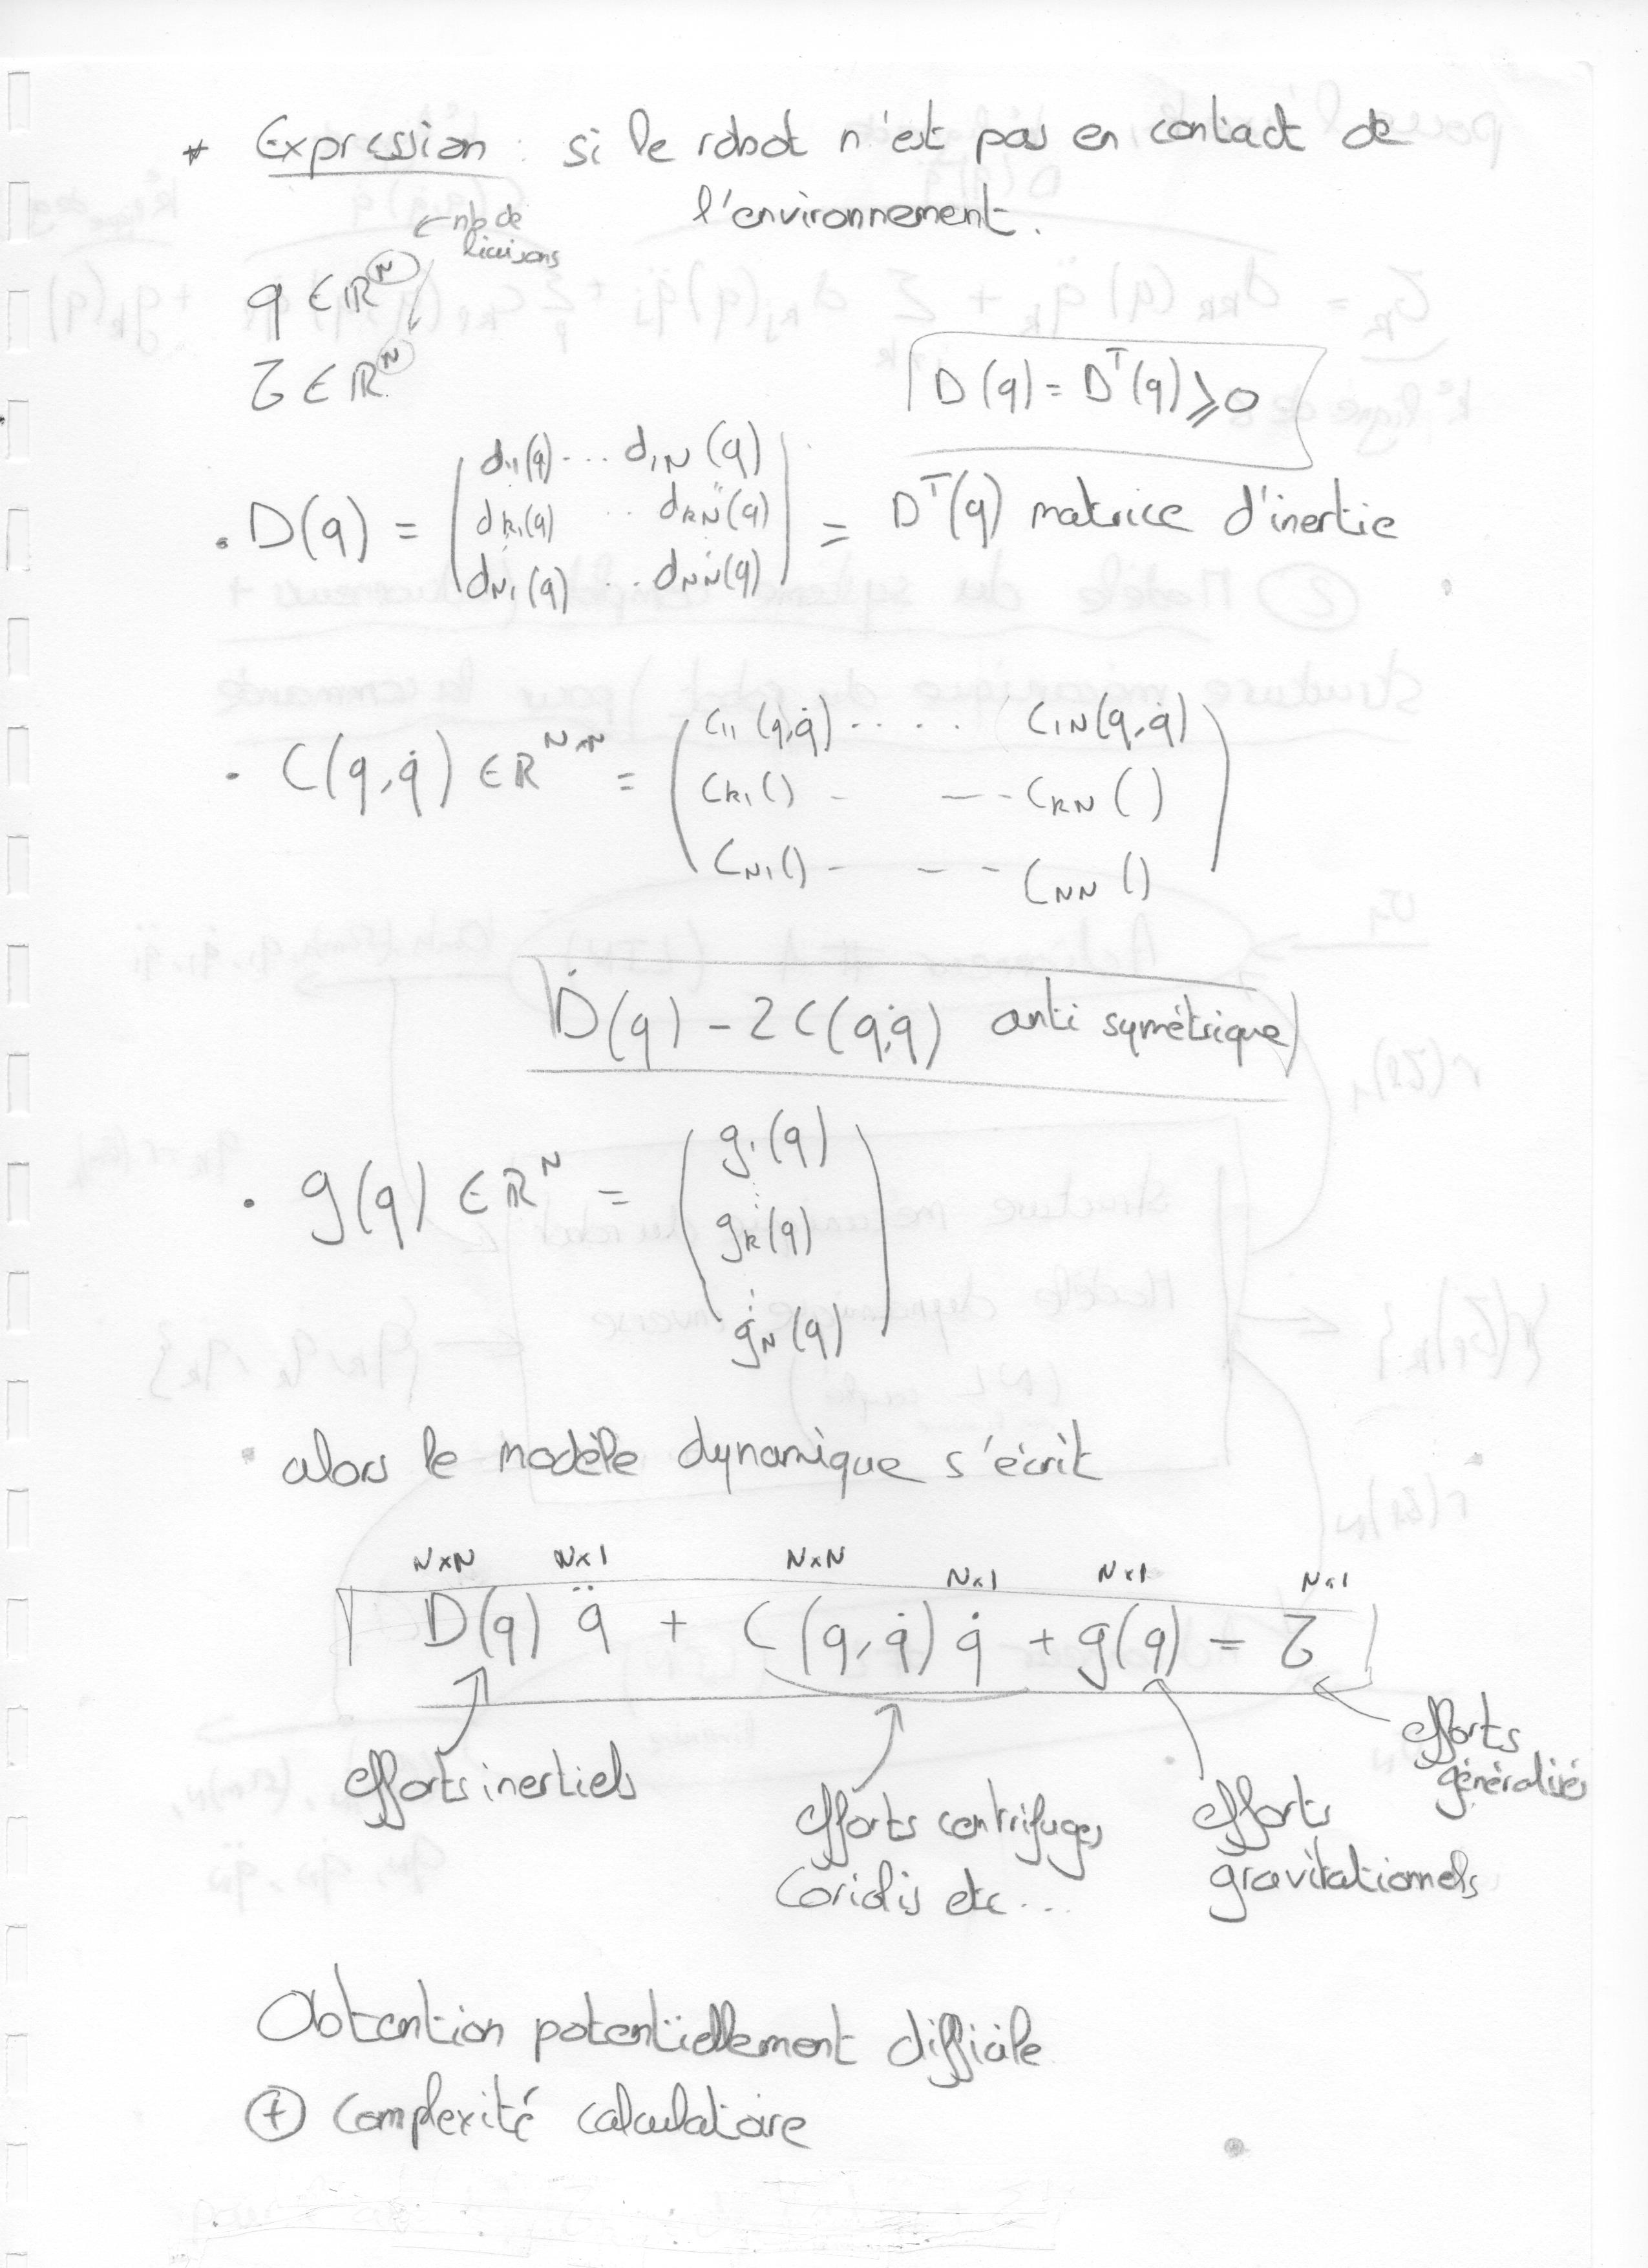 * Expression : si le robot n'est pas en contact de
l'environnement.
← nb de
liaisons
q ∈ ℝ^N
τ ∈ ℝ^N
D(q) = D^T(q) ⩾ 0
• D(q) = ( d11(q) ... d1N(q)
dk1(q) .. dkN(q)
dN1(q) .. dNN(q) ) = D^T(q) matrice d'inertie
• C(q,q̇) ∈ ℝ^N×N = ( C11(q,q̇) ..... C1N(q,q̇)
Ck1() - -- - CkN()
CN1() - - - - CNN() )
Ḋ(q) - 2C(q,q̇) anti symétrique
• g(q) ∈ ℝ^N = ( g1(q)
⋮
gk(q)
⋮
gN(q) )
• alors le modèle dynamique s'écrit
N×N N×1 N×N N×1 N×1 N×1
D(q) q̈ + C(q,q̇) q̇ + g(q) = τ
efforts inertiels
efforts centrifuges
Coriolis etc...
efforts
gravitationnels
efforts
généralisés
Obtention potentiellement difficile
⊕ complexité calculatoire